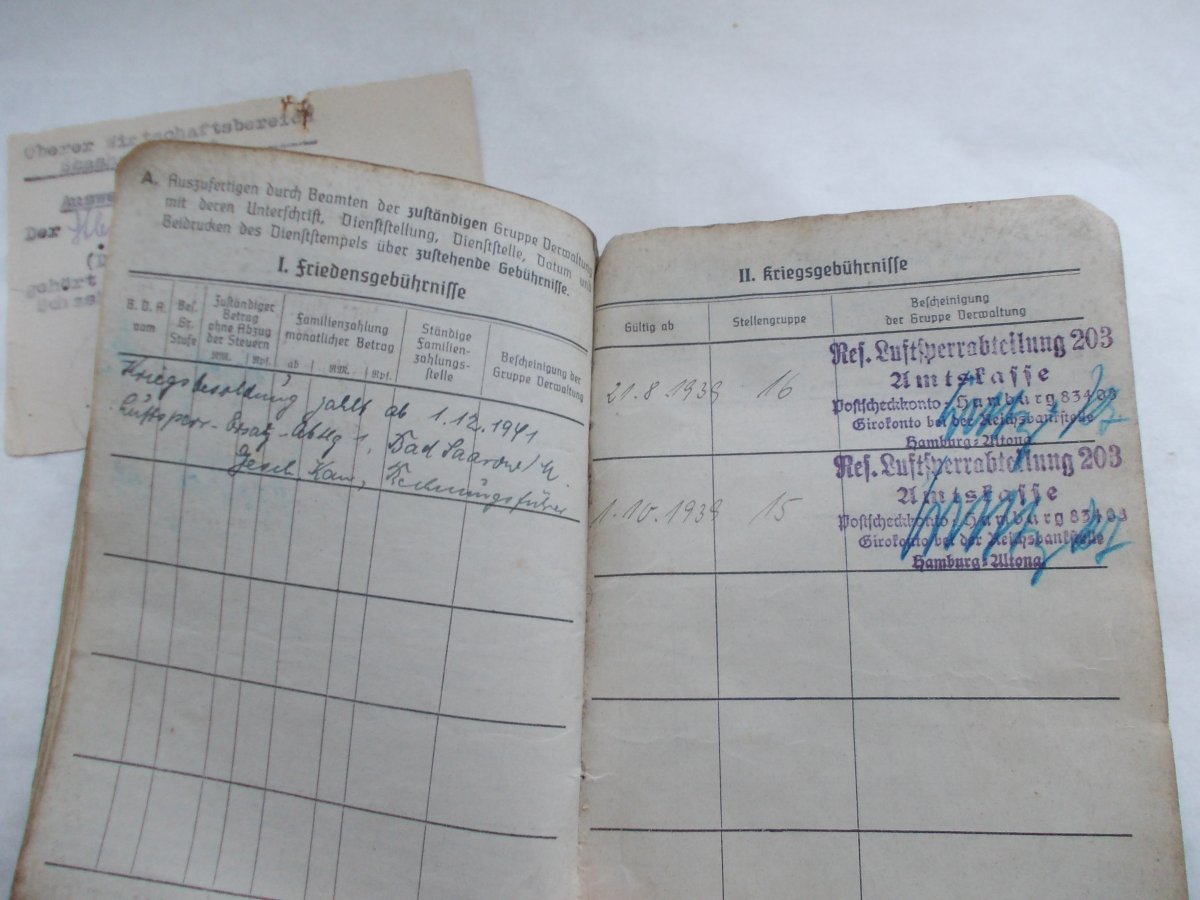 Oberer Wirtschaftsbereich
Der
gehört
A. Auszufertigen durch Beamten der zuständigen Gruppe Verwaltung
mit deren Unterschrift, Dienststellung, Dienststelle, Datum und
Beidrucken des Dienststempels über zustehende Gebührnisse.
I. Friedensgebührnisse
B. D. A. vom
Bes. Gr. Stufe
Zuständiger Betrag ohne Abzug der Steuern
RM. Rpf.
Familienzahlung monatlicher Betrag
ab RM. Rpf.
Ständige Familien-zahlungs-stelle
Bescheinigung der Gruppe Verwaltung
Kriegsbesoldung zahlt ab 1.12.1941
Luftsperr-Ersatz-Abtlg 1, Bad Saarow/M.
Rechnungsführer
II. Kriegsgebührnisse
Gültig ab
Stellengruppe
Bescheinigung
der Gruppe Verwaltung
21.8.1939 16
Res. Luftsperrabteilung 203
Amtskasse
Postscheckkonto: Hamburg 83403
Girokonto bei der Reichsbankstelle
Hamburg-Altona
1.10.1939 15
Res. Luftsperrabteilung 203
Amtskasse
Postscheckkonto: Hamburg 83403
Girokonto bei der Reichsbankstelle
Hamburg-Altona